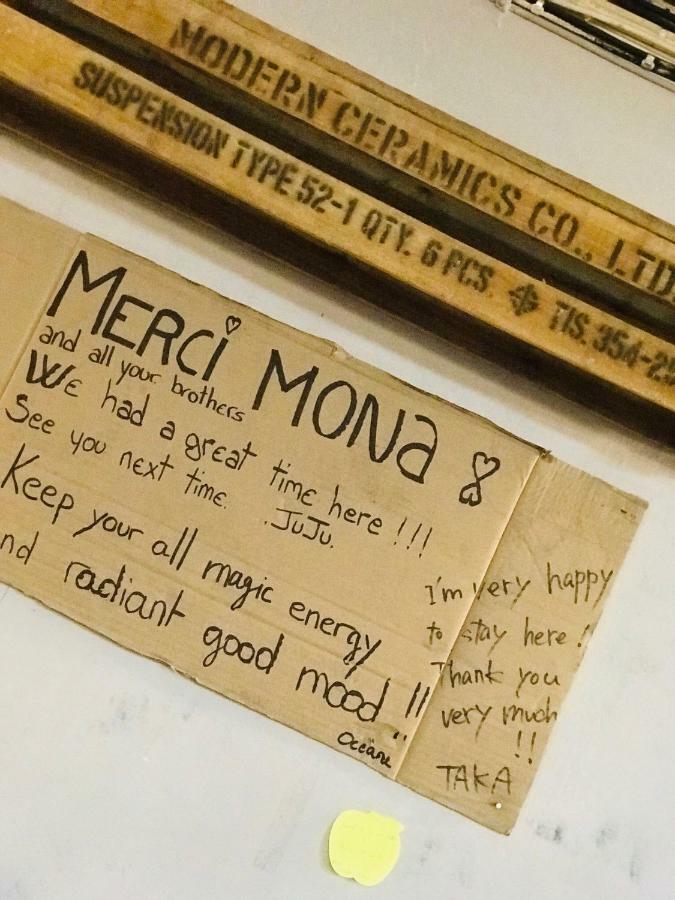 MODERN CERAMICS CO., LTD.
SUSPENSION TYPE 52-1 QTY. 6 PCS. TIS. 354-25
MERCi MONa
and all your brothers
WE had a great time here !!!
See you next time. .JuJu.
Keep your all magic energy
nd radiant good mood !!
Océane
I'm very happy
to stay here !
Thank you
very much
!!
TAKA